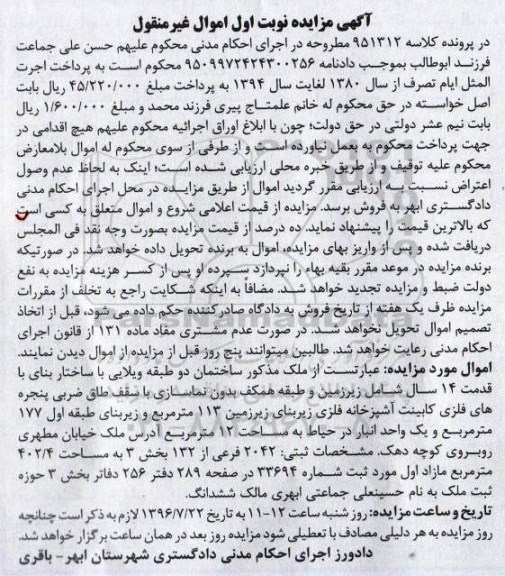 آگهی مزایده نوبت اول اموال غیرمنقول
در پرونده کلاسه ۹۵۱۳۱۲ مطروحه در اجرای احکام مدنی محکوم علیهم حسن علی جماعت
فرزند ابوطالب بموجب دادنامه ۹۵۰۹۹۷۲۴۲۴۳۰۰۲۵۶ محکوم است به پرداخت اجرت
المثل ایام تصرف از سال ۱۳۸۰ لغایت سال ۱۳۹۴ به پرداخت مبلغ ۴۵/۲۲۰/۰۰۰ ریال بابت
اصل خواسته در حق محکوم له خانم علمتاج پیری فرزند محمد و مبلغ ۱/۶۰۰/۰۰۰ ریال
بابت نیم عشر دولتی در حق دولت؛ چون با ابلاغ اوراق اجرائیه محکوم علیهم هیچ اقدامی در
جهت پرداخت محکوم به بعمل نیاورده است و از طرفی از سوی محکوم له اموال بلامعارض
محکوم علیه توقیف و از طریق خبره محلی ارزیابی شده است؛ اینک به لحاظ عدم وصول
اعتراض نسبت به ارزیابی مقرر گردید اموال از طریق مزایده در محل اجرای احکام مدنی
دادگستری ابهر به فروش برسد. مزایده از قیمت اعلامی شروع و اموال متعلق به کسی است
که بالاترین قیمت را پیشنهاد نماید. ده درصد از قیمت مزایده بصورت وجه نقد فی المجلس
دریافت شده و پس از واریز بهای مزایده، اموال به برنده تحویل داده خواهد شد. در صورتیکه
برنده مزایده در موعد مقرر بقیه بهاء را نپردازد سپرده او پس از کسر هزینه مزایده به نفع
دولت ضبط و مزایده تجدید خواهد شد. مضافاً به اینکه شکایت راجع به تخلف از مقررات
مزایده ظرف یک هفته از تاریخ فروش به دادگاه صادر کننده حکم داده می شود، قبل از اتخاذ
تصمیم اموال تحویل نخواهد شد. در صورت عدم مشتری مفاد ماده ۱۳۱ از قانون اجرای
احکام مدنی رعایت خواهد شد. طالبین میتوانند پنج روز قبل از مزایده از اموال دیدن نمایند.
اموال مورد مزایده: عبارتست از ملک مذکور ساختمان دو طبقه ویلایی با ساختار بنای با
قدمت ۱۴ سال شامل زیرزمین و طبقه همکف بدون نماسازی با سقف طاق ضربی پنجره
های فلزی کابینت آشپزخانه فلزی زیربنای زیرزمین ۱۱۳ مترمربع و زیربنای طبقه اول ۱۷۷
مترمربع و یک واحد انبار در حیاط به مساحت ۱۲ مترمربع آدرس ملک خیابان مطهری
روبروی کوچه دهک. مشخصات ثبتی: ۲۰۴۲ فرعی از ۱۳۲ بخش ۳ به مساحت ۴۰۲/۴
مترمربع مازاد اول مورد ثبت شماره ۳۳۶۹۴ در صفحه ۲۸۹ دفتر ۲۵۶ دفاتر بخش ۳ حوزه
ثبت ملک به نام حسینعلی جماعتی ابهری مالک ششدانگ.
تاریخ و ساعت مزایده: روز شنبه ساعت ۱۲-۱۱ به تاریخ ۱۳۹۶/۷/۲۲ لازم به ذکر است چنانچه
روز مزایده به هر دلیلی مصادف با تعطیلی شود مزایده روز بعد در همان ساعت برگزار خواهد شد.
دادورز اجرای احکام مدنی دادگستری شهرستان ابهر- باقری